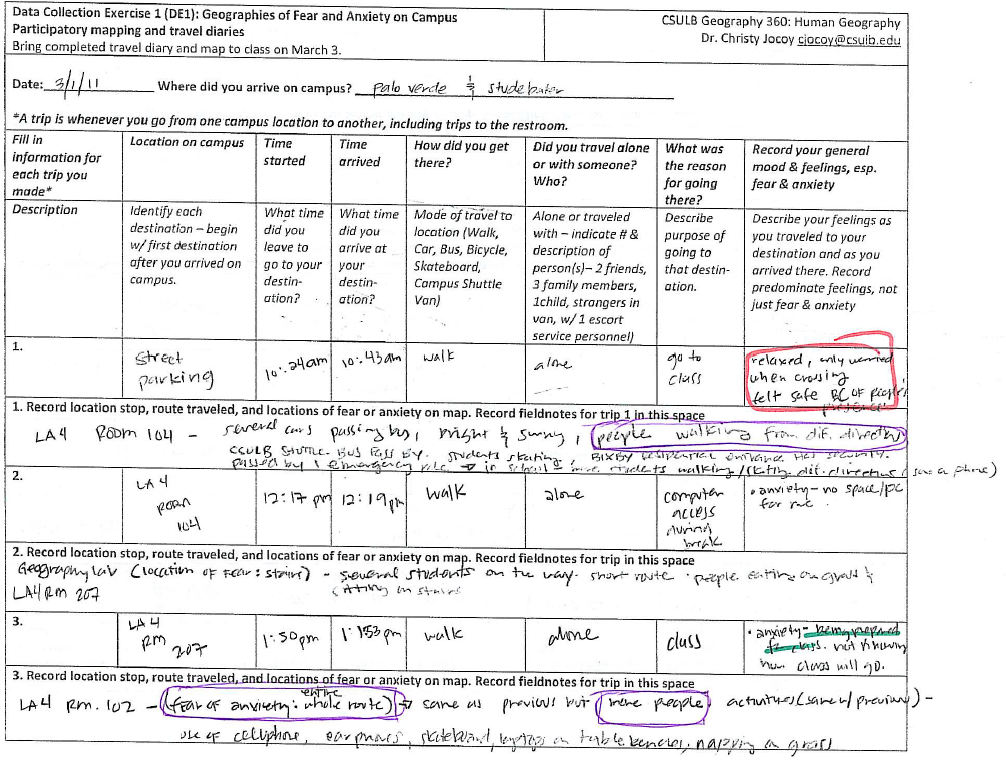 Data Collection Exercise 1 (DE1): Geographies of Fear and Anxiety on Campus
Participatory mapping and travel diaries
Bring completed travel diary and map to class on March 3.
CSULB Geography 360: Human Geography
Dr. Christy Jocoy cjocoy@csulb.edu
Date: 3/1/11 Where did you arrive on campus? Palo verde & studebaker
*A trip is whenever you go from one campus location to another, including trips to the restroom.
Fill in information for each trip you made*
Location on campus
Time started
Time arrived
How did you get there?
Did you travel alone or with someone? Who?
What was the reason for going there?
Record your general mood & feelings, esp. fear & anxiety
Description
Identify each destination – begin w/ first destination after you arrived on campus.
What time did you leave to go to your destin-ation?
What time did you arrive at your destin-ation?
Mode of travel to location (Walk, Car, Bus, Bicycle, Skateboard, Campus Shuttle Van)
Alone or traveled with – indicate # & description of person(s)– 2 friends, 3 family members, 1child, strangers in van, w/ 1 escort service personnel)
Describe purpose of going to that destin-ation.
Describe your feelings as you traveled to your destination and as you arrived there. Record predominate feelings, not just fear & anxiety
1.
street parking
10:24am
10:43am
walk
alone
go to class
relaxed, only worried when crossing felt safe BC OF people's presence
1. Record location stop, route traveled, and locations of fear or anxiety on map. Record fieldnotes for trip 1 in this space
LA4 ROOM 104 – several cars passing by, bright & sunny, people walking from dif. direction
CSULB SHUTTLE BUS PASS BY. students skating, BIXBY RESIDENTIAL entrance Has security.
passed by 1 emergency pole in school & more students walking/skating dif. directions (saw a phone)
2.
LA 4 room 104
12:17 pm
12:19pm
walk
alone
computer access during break
• anxiety – no space/pc for me.
2. Record location stop, route traveled, and locations of fear or anxiety on map. Record fieldnotes for trip in this space
Geography lab (location of fear: stairs) – several students on the way. short route. people eating on grass &
LA4 RM 207 sitting on stairs
3.
LA 4 RM 207
1:50pm
1:53pm
walk
alone
class
• anxiety – being prepared for class. not knowing how class will go.
3. Record location stop, route traveled, and locations of fear or anxiety on map. Record fieldnotes for trip in this space
LA4 RM. 102 – (fear of anxiety: entire whole route) → same as previous but more people activities (same w/ previous) –
use of cellphone, earphones, skateboard, laptops on table benches, napping on grass